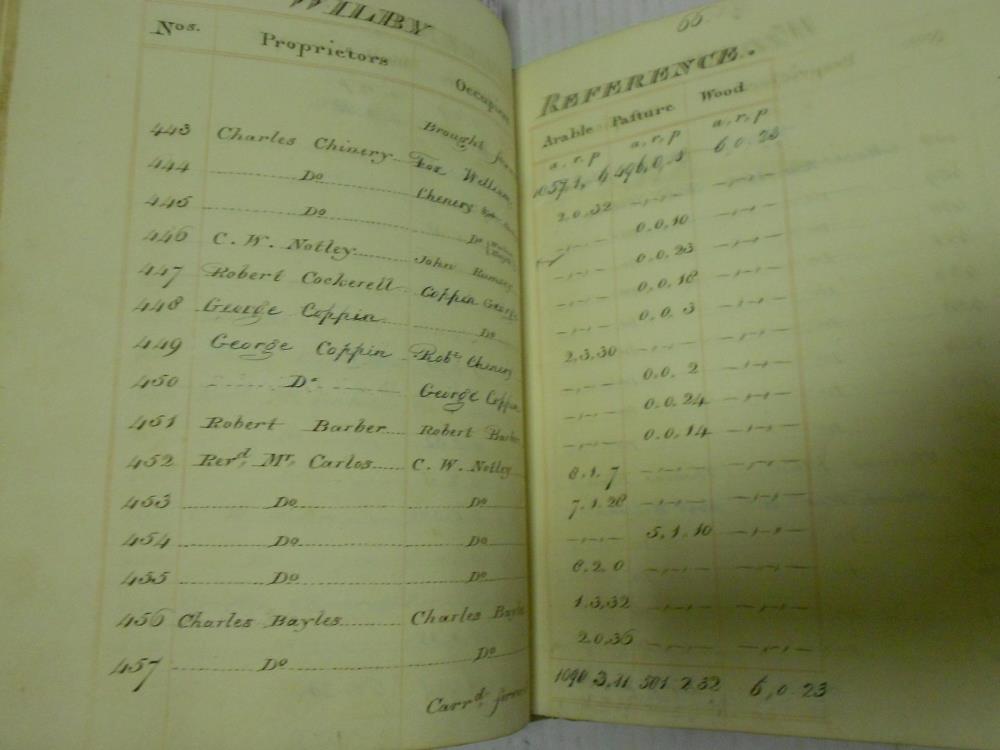 WILBY
Nos. Proprietors Occupiers
Brought forw
443 Charles Chinery Fox William
444 Do Chenery
445 Do Do
446 C. W. Notley John Rumsey
447 Robert Cockerell Coppin George
448 George Coppin Do
449 George Coppin Robt Chenery
450 Do George Coppin
451 Robert Barber Robert Barber
452 Revd, Mr, Carlos C. W. Notley
453 Do Do
454 Do Do
455 Do Do
456 Charles Bayles Charles Bayle
457 Do Do
Carrd, forw
66
REFERENCE.
Arable Pasture Wood
a, r, p a, r, p a, r, p
1057,1, 6 496,0,8 6,0,23
2,0,32 -,-,- -,-,-
-,-,- 0,0,10 -,-,-
-,-,- 0,0,23 -,-,-
-,-,- 0,0,18 -,-,-
-,-,- 0,0,3 -,-,-
2,3,30 -,-,- -,-,-
-,-,- 0,0,2 -,-,-
-,-,- 0,0,24 -,-,-
-,-,- 0,0,14 -,-,-
8,1,7 -,-,- -,-,-
7,1,28 -,-,- -,-,-
-,-,- 5,1,10 -,-,-
8,2,0 -,-,- -,-,-
1,3,32 -,-,- -,-,-
2,0,36 -,-,- -,-,-
1090,3,11 501,2,32 6,0,23